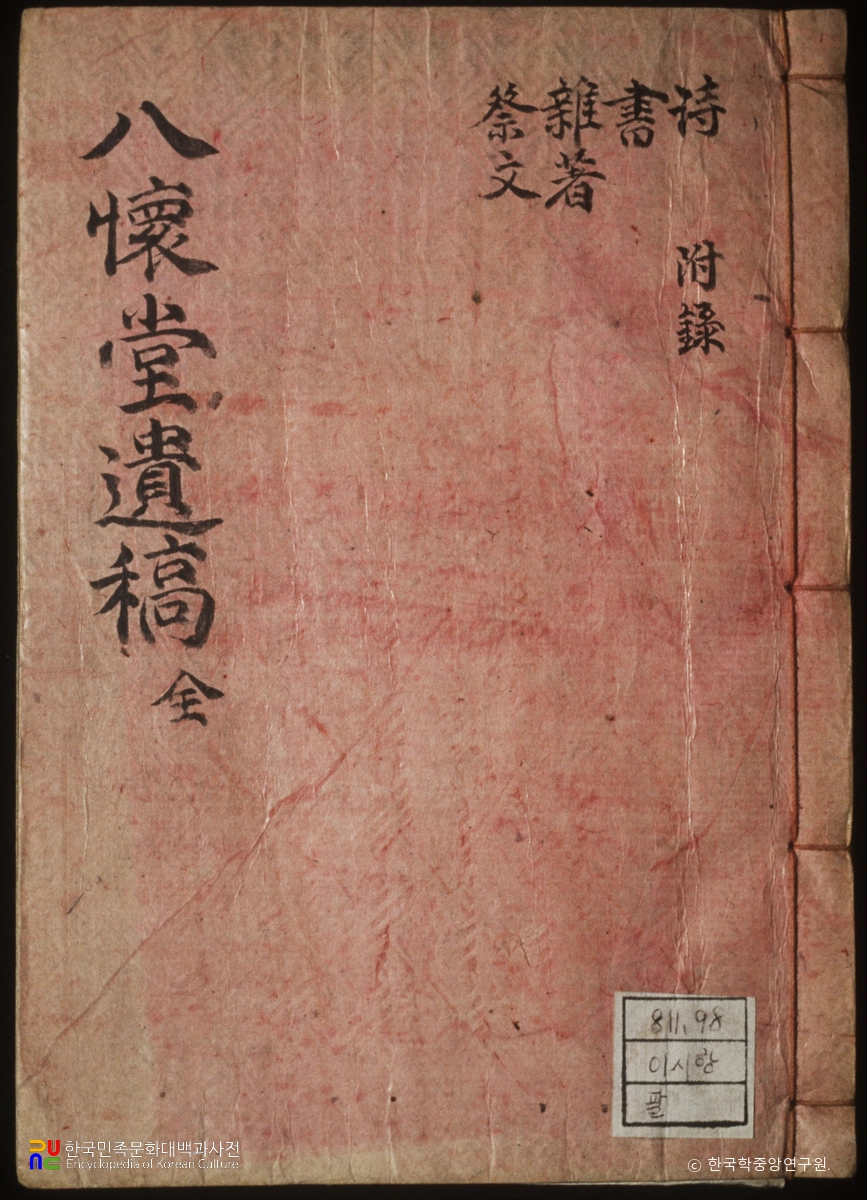 詩
附錄
書
雜著
祭文
八懷堂遺稿 全
811.98
이시항
팔
한국민족문화대백과사전
Encyclopedia of Korean Culture
© 한국학중앙연구원.